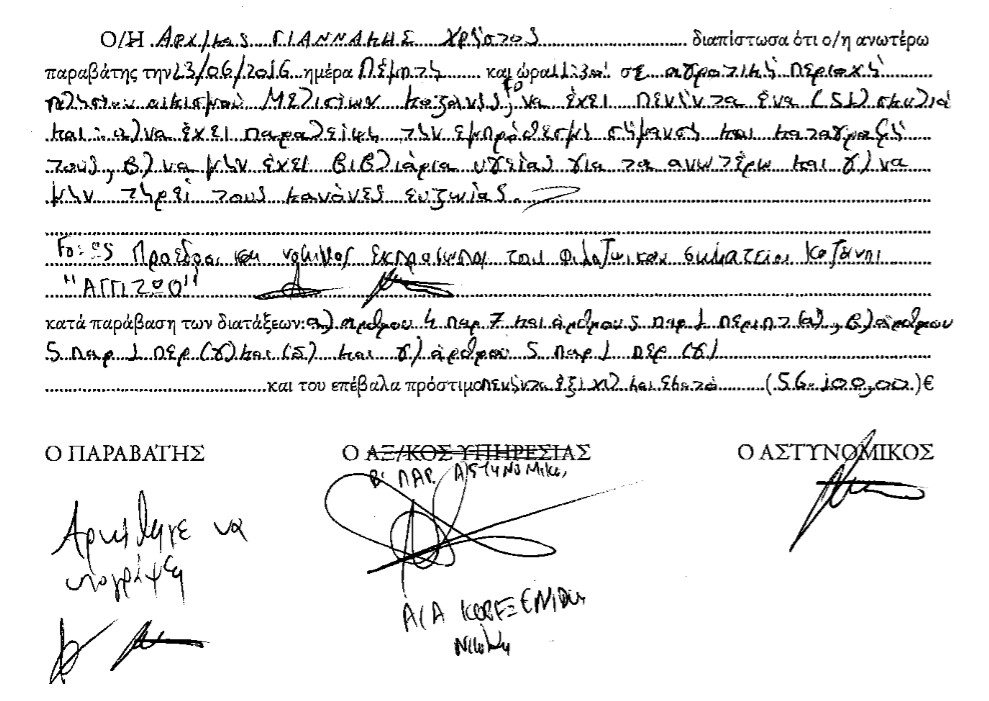 Ο/Η Αρχ/κας ΓΙΑΝΝΑΚΗΣ Χρήστος διαπίστωσα ότι ο/η ανωτέρω
παραβάτης την 23/06/2016 ημέρα Πέμπτη και ώρα σε αγροτική περιοχή
πλησίον οικισμού Μελισίων Κοζάνης, το να έχει πενήντα ένα (51) σκυλιά
και: α) να έχει παραλείψει την εμπρόθεσμη σήμανση και καταγραφή
τους, β) να μην έχει βιβλιάρια υγείας για τα ανωτέρω και γ) να
μην τηρεί τους κανόνες ευζωίας.
Πρόεδρος και νόμιμος εκπρόσωπος του Φιλοζωικού σωματείου Κοζάνης
"ΑΓΓΙΖΩΟ"
κατά παράβαση των διατάξεων: α) άρθρου 4 παρ 7 και άρθρου 5 παρ 1 περιπτ (α), β) άρθρου
5 παρ 1 περ (γ) και (δ) και γ) άρθρου 5 παρ 1 περ (β)
και του επέβαλα πρόστιμο πενήντα έξι χιλ και εκατό (56.100,00)€
Ο ΠΑΡΑΒΑΤΗΣ Ο ΑΞ/ΚΟΣ ΥΠΗΡΕΣΙΑΣ Ο ΑΣΤΥΝΟΜΙΚΟΣ
Β' ΠΑΡ. ΑΣΤΥΝΟΜΙΚΟΣ
Αρνήθηκε να
υπογράψει
Α/Α